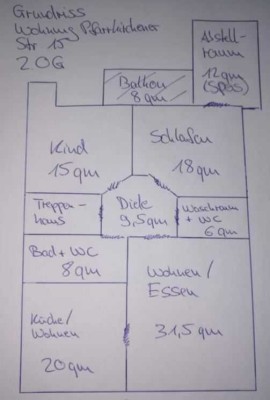 Grundriss
Wohnung Pfarrkirchener
Str 15
2OG
Abstell-
raum
12qm
(Spos)
Balkon
8qm
Kind
15qm
Schlafen
18qm
Treppen-
haus
Diele
9,5qm
Waschraum
+ WC
6qm
Bad + WC
8qm
Wohnen/
Essen
31,5qm
Küche/
Wohnen
20qm